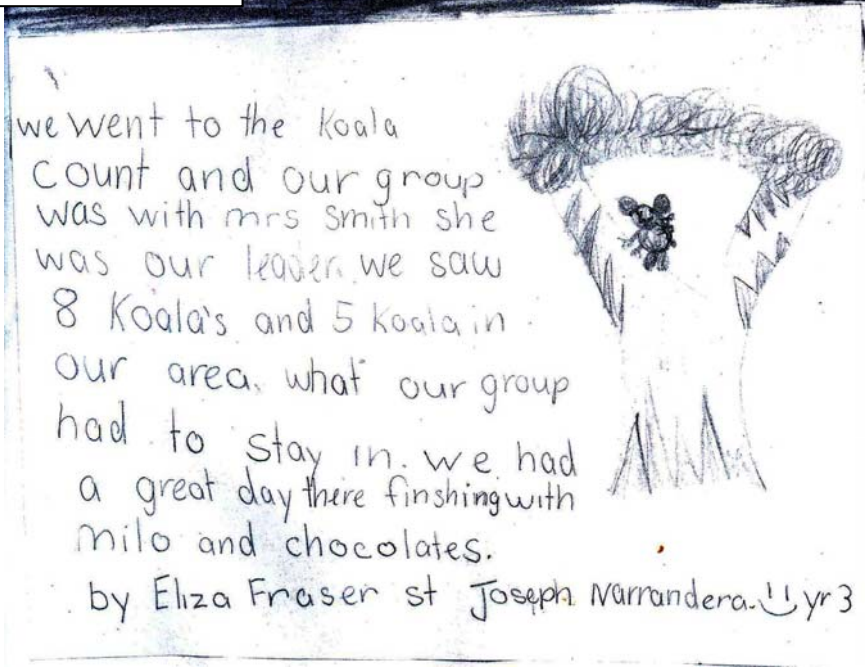 we went to the Koala
count and our group
was with mrs Smith she
was our leader. we saw
8 Koala's and 5 koala in
our area. what our group
had to stay in. we had
a great day there finshing with
milo and chocolates.
by Eliza Fraser st Joseph Narrandera. yr 3